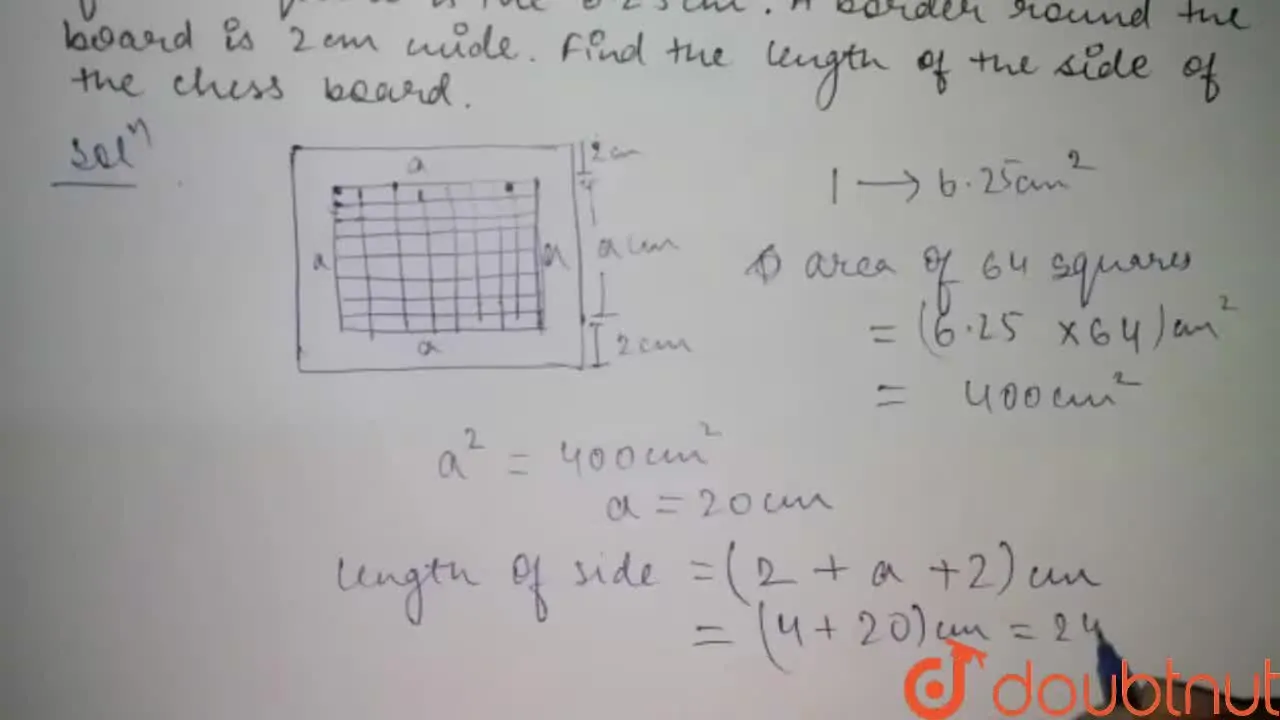 is the 6.25cm. A border round the
board is 2cm wide. Find the length of the side of
the chess board.
Solⁿ
a
2cm
1 → 6.25cm²
a
a
a cm
area of 64 squares
= (6.25 × 64) cm²
a
2cm
= 400cm²
a² = 400cm²
a = 20cm
length of side = (2 + a + 2) cm
= (4 + 20) cm = 24
doubtnut